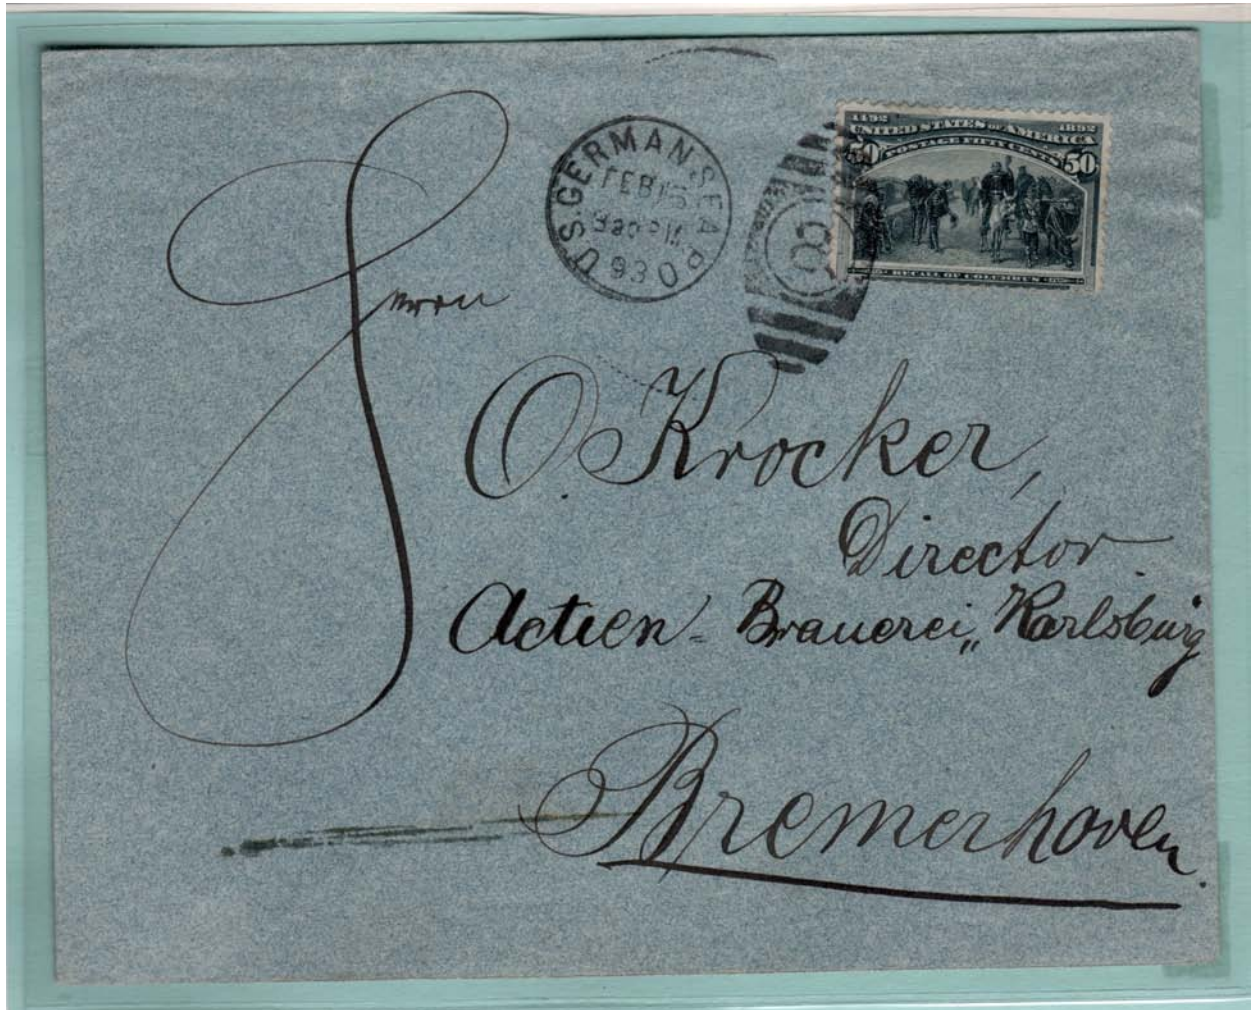 U.S. GERMAN SEA P.O.
FEB
93
8
1492 1892
UNITED STATES OF AMERICA
POSTAGE FIFTY CENTS
50 50
RECALL OF COLUMBUS
Herrn
O. Krocker,
Director.
Actien-Brauerei „Karlsburg
Bremerhaven.